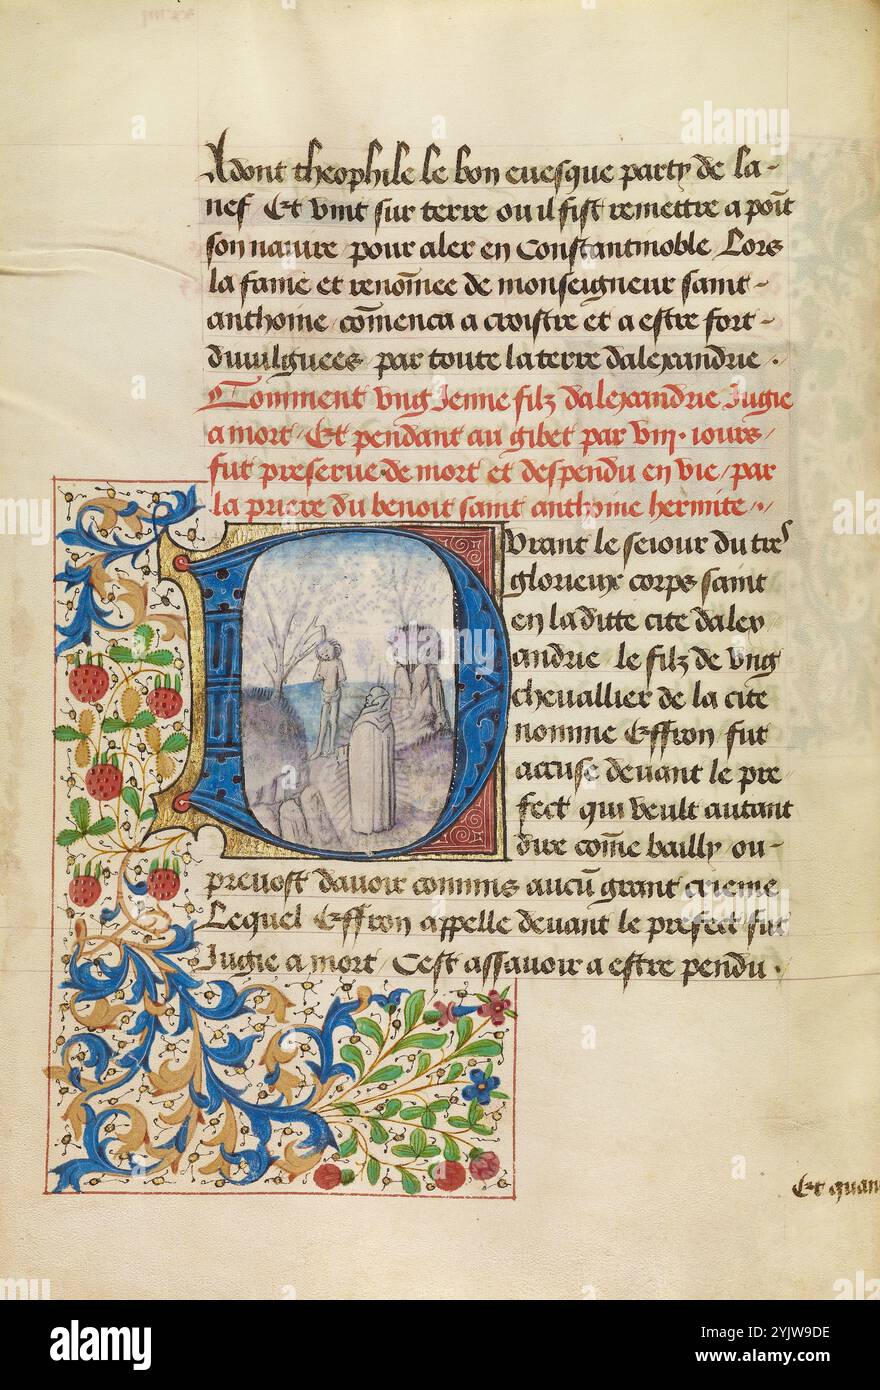 Adont theophile le bon euesque party de la-
nef Et vint sur terre ou il fist remettre a poīt
son nauire pour aler en Constantinoble Lors
la fame et renōmee de monseigneur saint-
anthoine cōmenca a croistre et a estre fort-
diuulguees par toute la terre dalexandrie .
Comment vng Jenne filz dalexandrie Jugie
a mort Et pendant au gibet par viii. iours
fut preserue de mort et despendu en vie par
la priere du benoit saint anthoine hermite .
Durant le seiour du tres
glorieux corps saint
en laditte cite dalex
andrie le filz de vng
cheuallier de la cite
nomme Effron fut
accuse deuant le pre
fect qui veult autant
dire cōme bailly ou-
preuost dauoir commis aucū grant crieme
Lequel Effron appelle deuant le prefect fut
Jugie a mort Cest assauoir a estre pendu .
Et quant
alamy
Image ID: 2YJW9DE
www.alamy.com